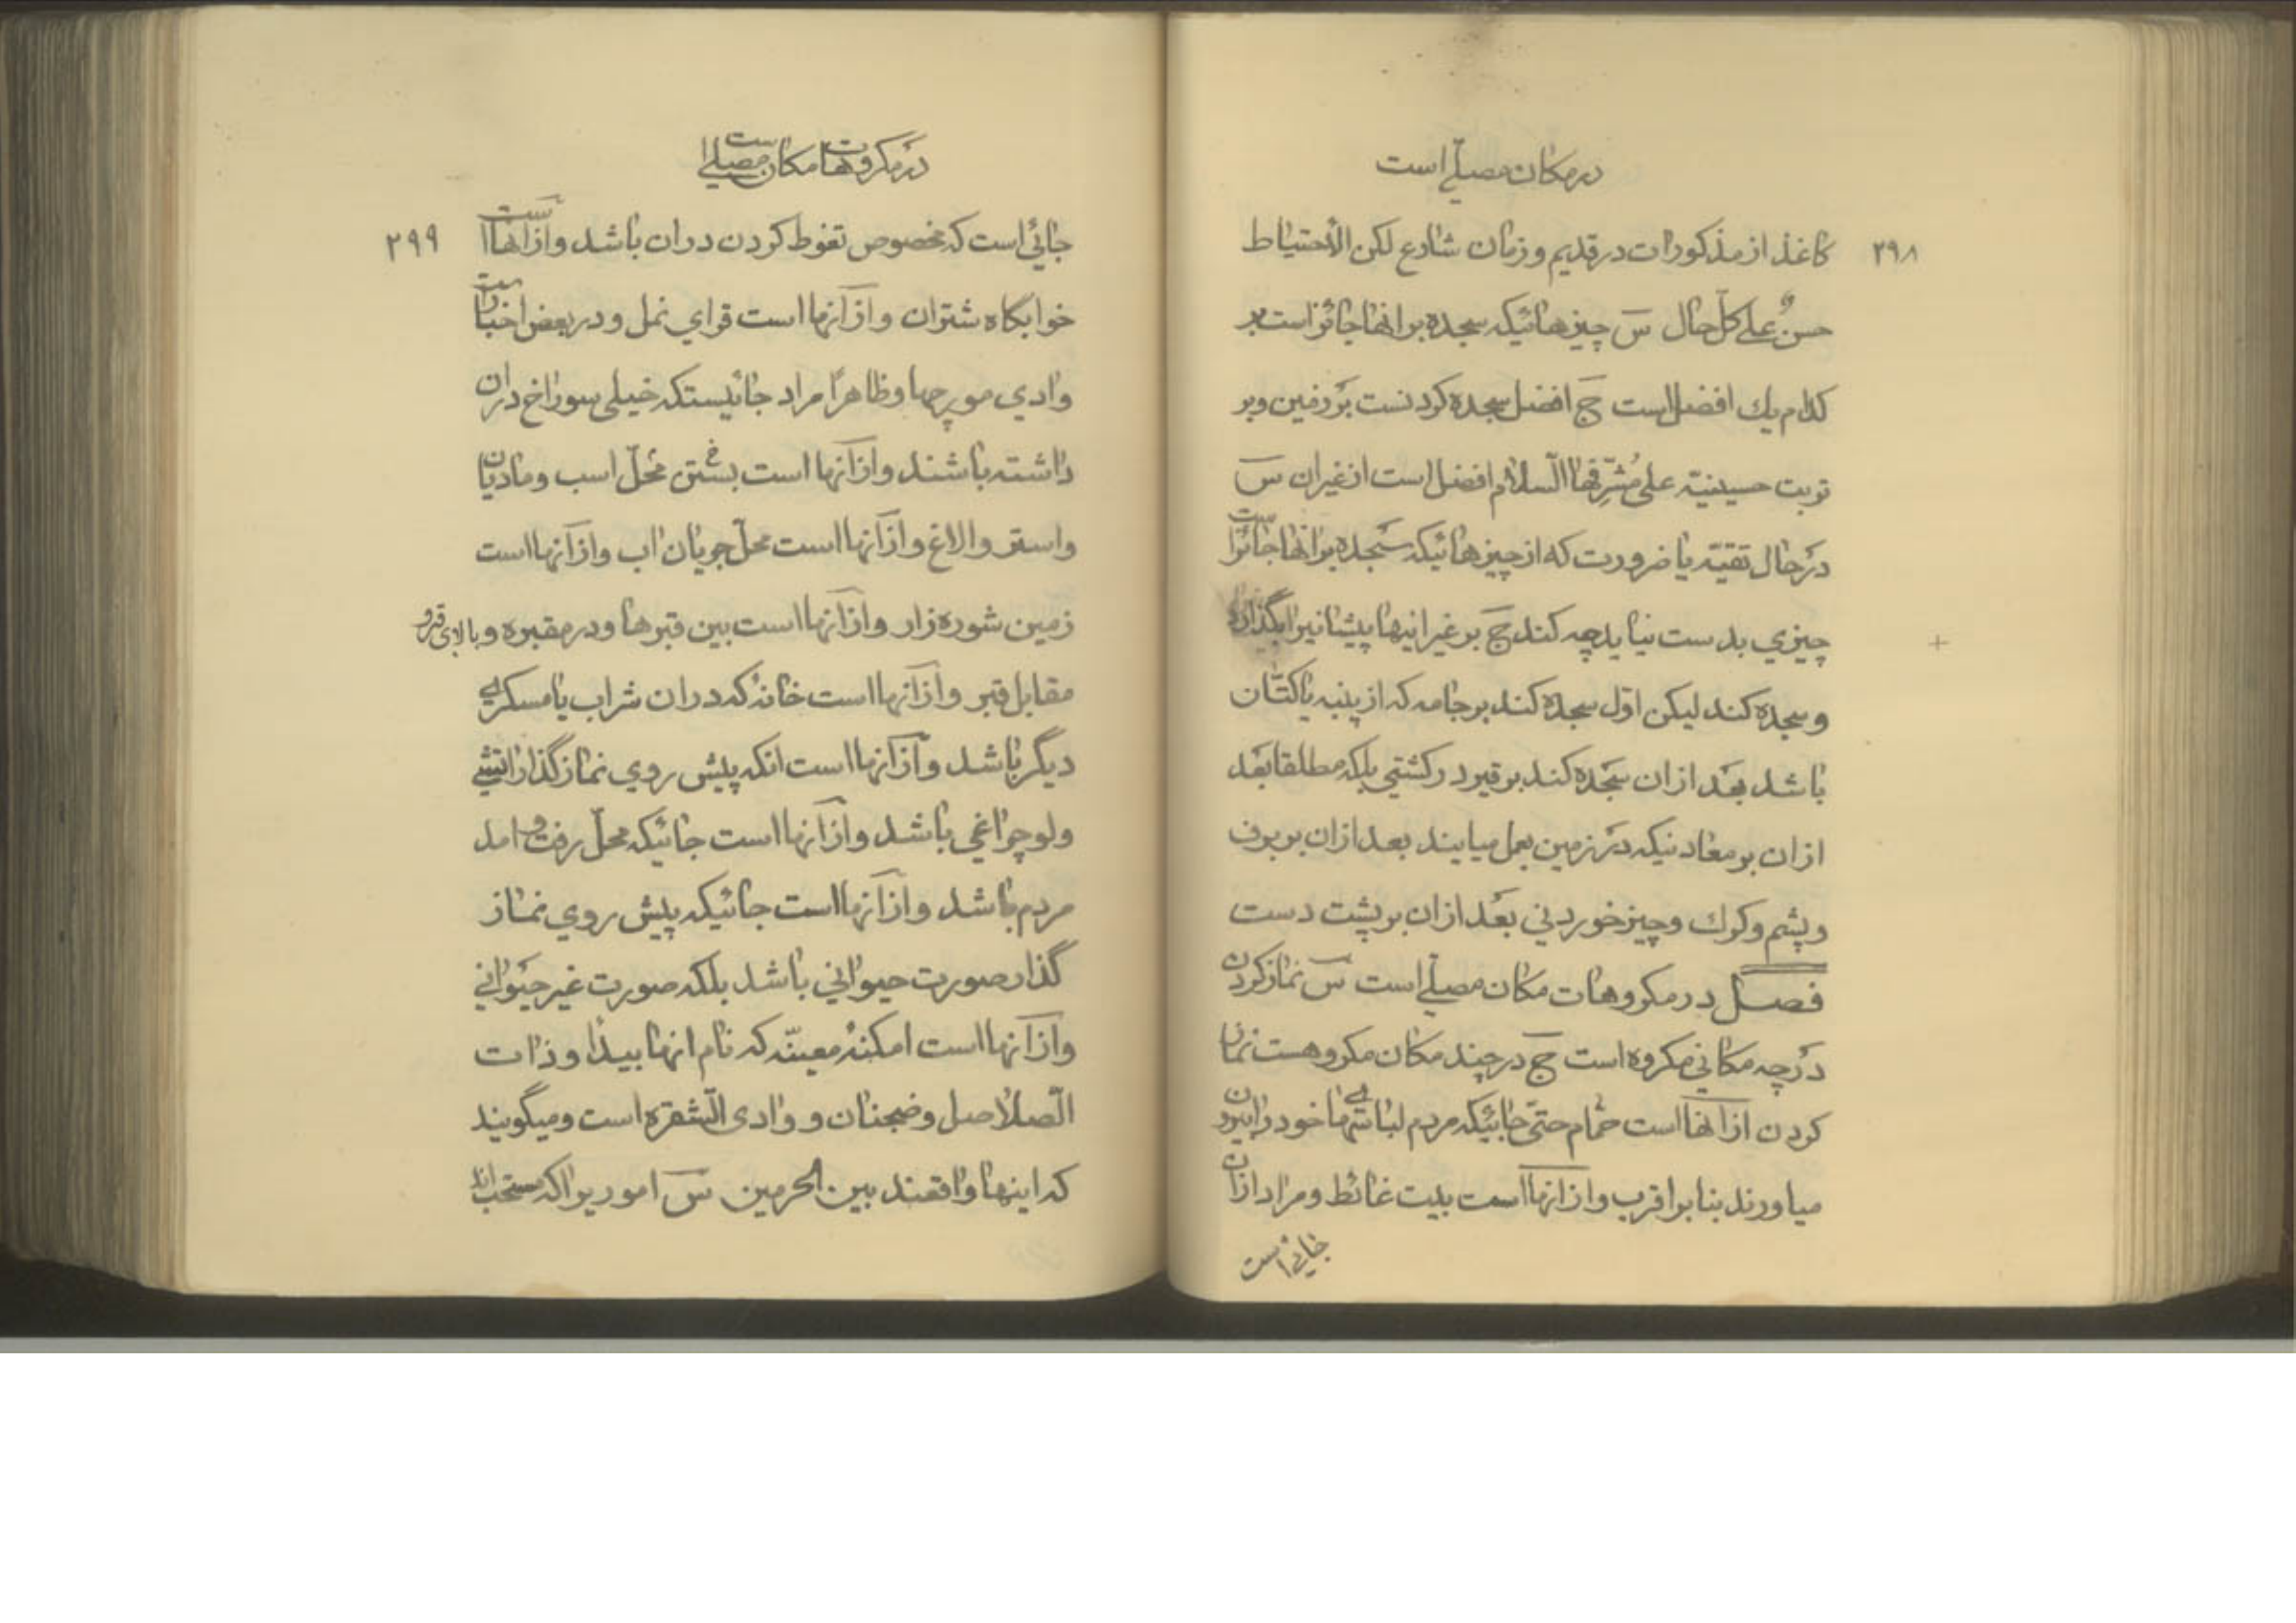 در مکان مصلّی است
۲۹۸
کاغذ از مذکورات در قدیم و زمان شارع لکن الأحتیاط
حسنٌ علی کلّ حال سَ چیزهائیکه سجده بر انها جائز است بر
کدام یك افضل است جَ افضل سجده کردنست بر زمین و بر
تربت حسینیّه علی مُشَرّفها السلام افضل است از غیر ان سَ
در حال تقیّه یا ضرورت که از چیزهائیکه سجده بر انها جائز است
چیزی بدست نیاید چه کند جَ بر غیر اینها پیشانیرا بگذارد
و سجده کند لیکن اوّل سجده کند بر جامه که از پنبه یا کتّان
باشد بعد از ان سجده کند بر قیر در کشتی بلکه مطلقا بعد
از ان بر معادنیکه در زمین بعمل میایند بعد از ان بر برف
و پشم و کرك و چیز خوردنی بعد از ان بر پشت دست
فصل در مکروهات مکان مصلّی است سَ نماز کردن
در چه مکانی مکروه است جَ در چند مکان مکروهست نماز
کردن از انها است حمّام حتّی جائیکه مردم لباسهای خود را بیرون
میاورند بنا بر اقرب و از انها است بیت غائط و مراد از ان
جائی است
در مکروهات مکان مصلّی است
۲۹۹
جائی است که مخصوص تغوط کردن در ان باشد و از انها است
خوابگاه شتران و از آنها است قرای نمل و در بعض اخبار است
وادی مورچها و ظاهرًا مراد جائیستکه خیلی سوراخ در ان
داشته باشند و از آنها است بستن محلّ اسب و مادیان
و استر و الاغ و از آنها است محلّ جریان اب و از آنها است
زمین شوره زار و از آنها است بین قبرها و در مقبره و بالای قبر و
مقابل قبر و از آنها است خانهٔ که در ان شراب یا مسکری
دیگر باشد و از آنها است انکه پیش روی نماز گذار اتشی
ولو چراغی باشد و از آنها است جائیکه محلّ رفت و امد
مردم باشد و از آنها است جائیکه پیش روی نماز
گذار صورت حیوانی باشد بلکه صورت غیر حیوانی
و از آنها است امکنهٔ معیّنه که نام انها بیدأ و ذات
الصّلاصل و ضجنان و وادی الشقره است و میگویند
که اینها واقعند بین الحرمین سَ اموریرا که مستحب اند